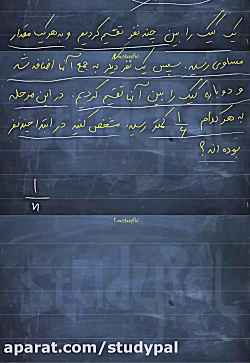 یک کیک را بین چند نفر تقسیم کردیم و به هر یک مقدار
مساوی رسید. سپس یک نفر دیگر به جمع آنها اضافه شد
و دوباره کیک را بین آنها تقسیم کردیم. در این مرحله
به هر کدام 1/6 کمتر رسید. مشخص کنید در ابتدا چند نفر
بوده اند؟
1/n
aparat.com/studypal